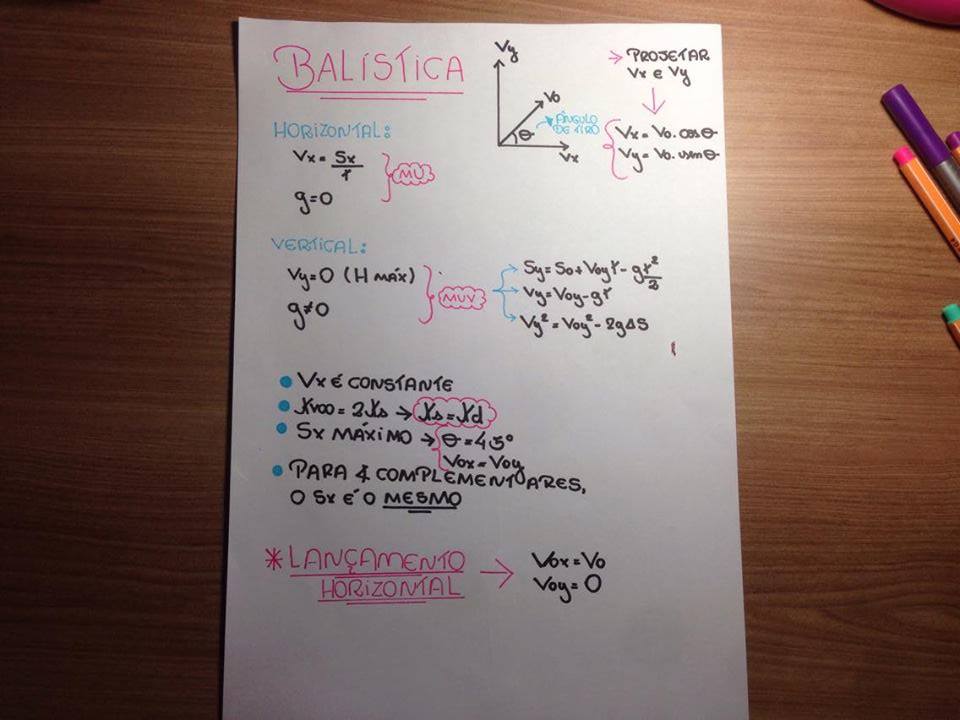 BALÍSTICA
Vy
Vo
θ
ÂNGULO
DE TIRO
Vx
→ PROJETAR
Vx e Vy
Vx = Vo. cosθ
Vy = Vo. senθ
HORIZONTAL:
Vx = Sx/t
g=0
MU
VERTICAL:
Vy=0 (H MÁX)
g≠0
MUV
Sy = So + Voyt - gt²/2
Vy = Voy - gt
Vy² = Voy² - 2gΔS
• Vx É CONSTANTE
• tvoo = 2ts → ts = td
• Sx MÁXIMO → θ = 45°
Vox = Voy
• PARA ∡ COMPLEMENTARES,
O Sx É O MESMO
*LANÇAMENTO
HORIZONTAL → Vox = Vo
Voy = 0